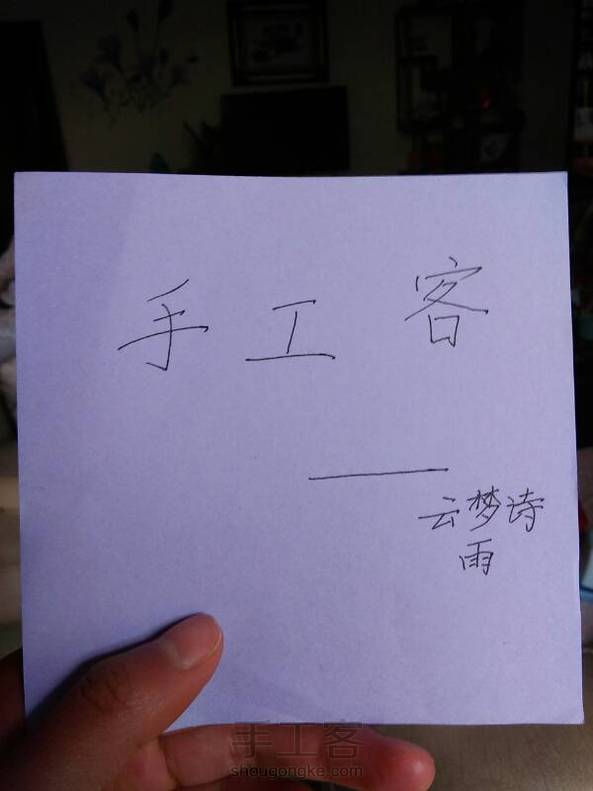 手工客
——云梦诗
雨
手工客
shougongke.com